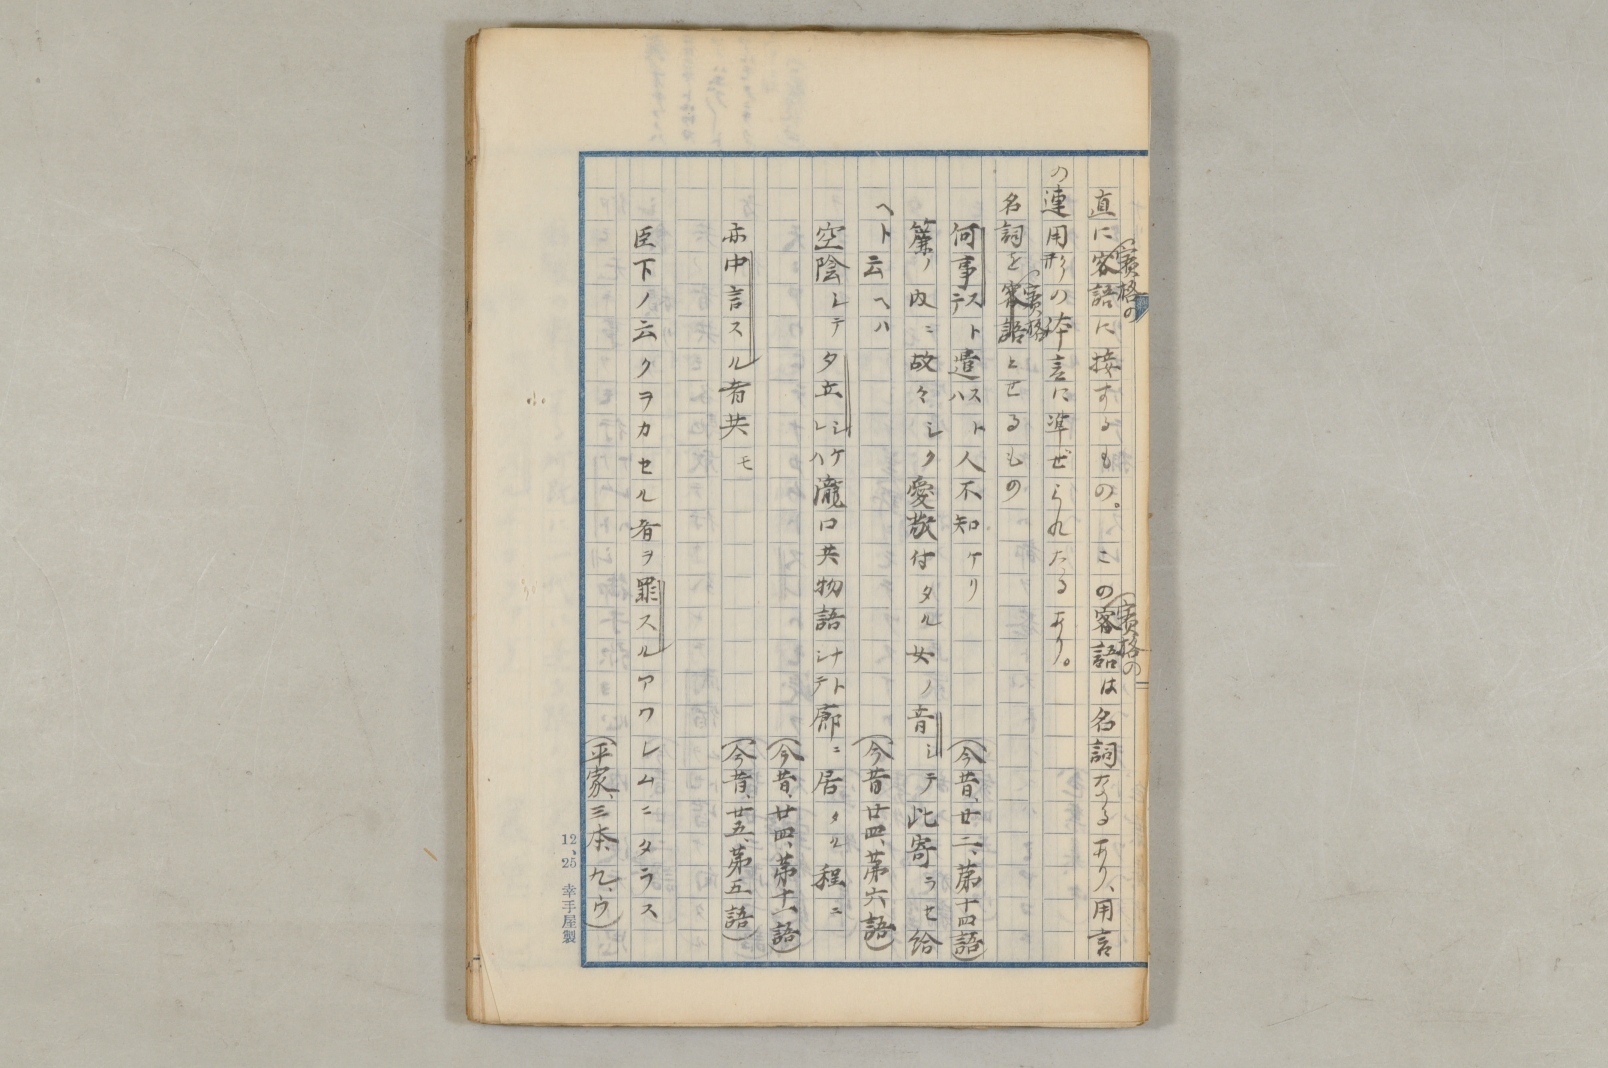 直に客語に接するもの。この客語は名詞なるあり、用言
(賓格の
(賓格の
の連用形の体言に準ぜられたるあり。
名詞を客語とせるもの
(賓格
何事ステト遣スハト人不知ケリ
(今昔、廿二、第十四語)
簾ノ内ニ故々シク愛敬付タル女ノ音シテ此寄ラセ給
ヘト云ヘハ
(今昔廿四、第六語)
空陰シテ夕立シケレハ瀧口共物語シナトテ廊ニ居タル程ニ
(今昔、廿四、第十一語)
亦中言スル者共モ
(今昔、廿五、第五語)
臣下ノ云クヲカセル者ヲ罪スルアワレムニタラス
(平家、三本、九、ウ)
12、25 幸手屋製